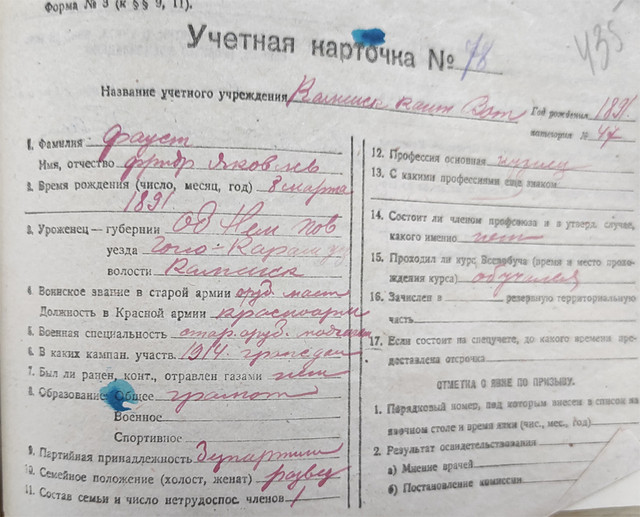 Форма № 3 (к §§ 9, 11).
435
Учетная карточка № 78
Название учетного учреждения Каменск кант
Год рождения 1891
категория № 47
1. Фамилия Фауст
Имя, отчество Фридр Яковлев
2. Время рождения (число, месяц, год) 8 марта
1891
3. Уроженец — губернии Об Нем Пов
уезда Голо-Карамыш
волости Каменск
4. Воинское звание в старой армии оруд. маст
Должность в Красной армии красноарм
5. Военная специальность стар. оруд.
6. В каких кампан. участв. 1914. граждан
7. Был ли ранен, конт., отравлен газами нет
8. Образование: Общее грамот
Военное
Спортивное
9. Партийная принадлежность безпартийн
10. Семейное положение (холост, женат) развед
11. Состав семьи и число нетрудоспос. членов 1
12. Профессия основная кузнец
13. С какими профессиями еще знаком
14. Состоит ли членом профсоюза и в утверд. случае,
какого именно нет
15. Проходил ли курс Всевобуча (время и место прохо-
ждения курса) обучился
16. Зачислен в резервную территориальную
часть
17. Если состоит на спецучете, до какого времени пре-
доставлена отсрочка
ОТМЕТКА О ЯВКЕ ПО ПРИЗЫВУ.
1. Порядковый номер, под которым внесен в список на
явочном столе и время явки (чис., мес., год)
2. Результат освидетельствования
а) Мнение врачей
б) Постановление комиссии